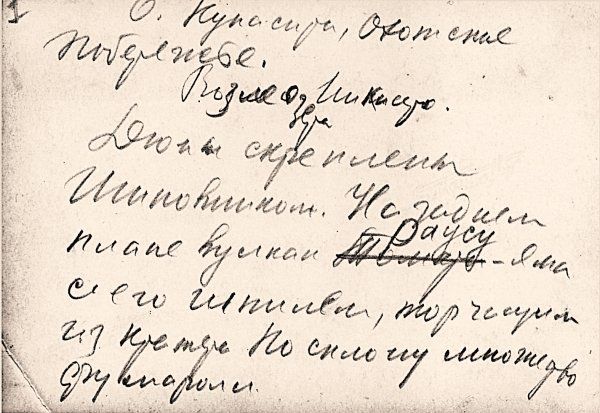 1
О. Кунасири, Охотское
побережье.
Возле оз Никисиро.
ера
Дюны скреплены
Шиповником. На заднем
плане вулкан Раусу
-Яма
с его шпилем, торчащим
из кратера По склону множество
фумарол.